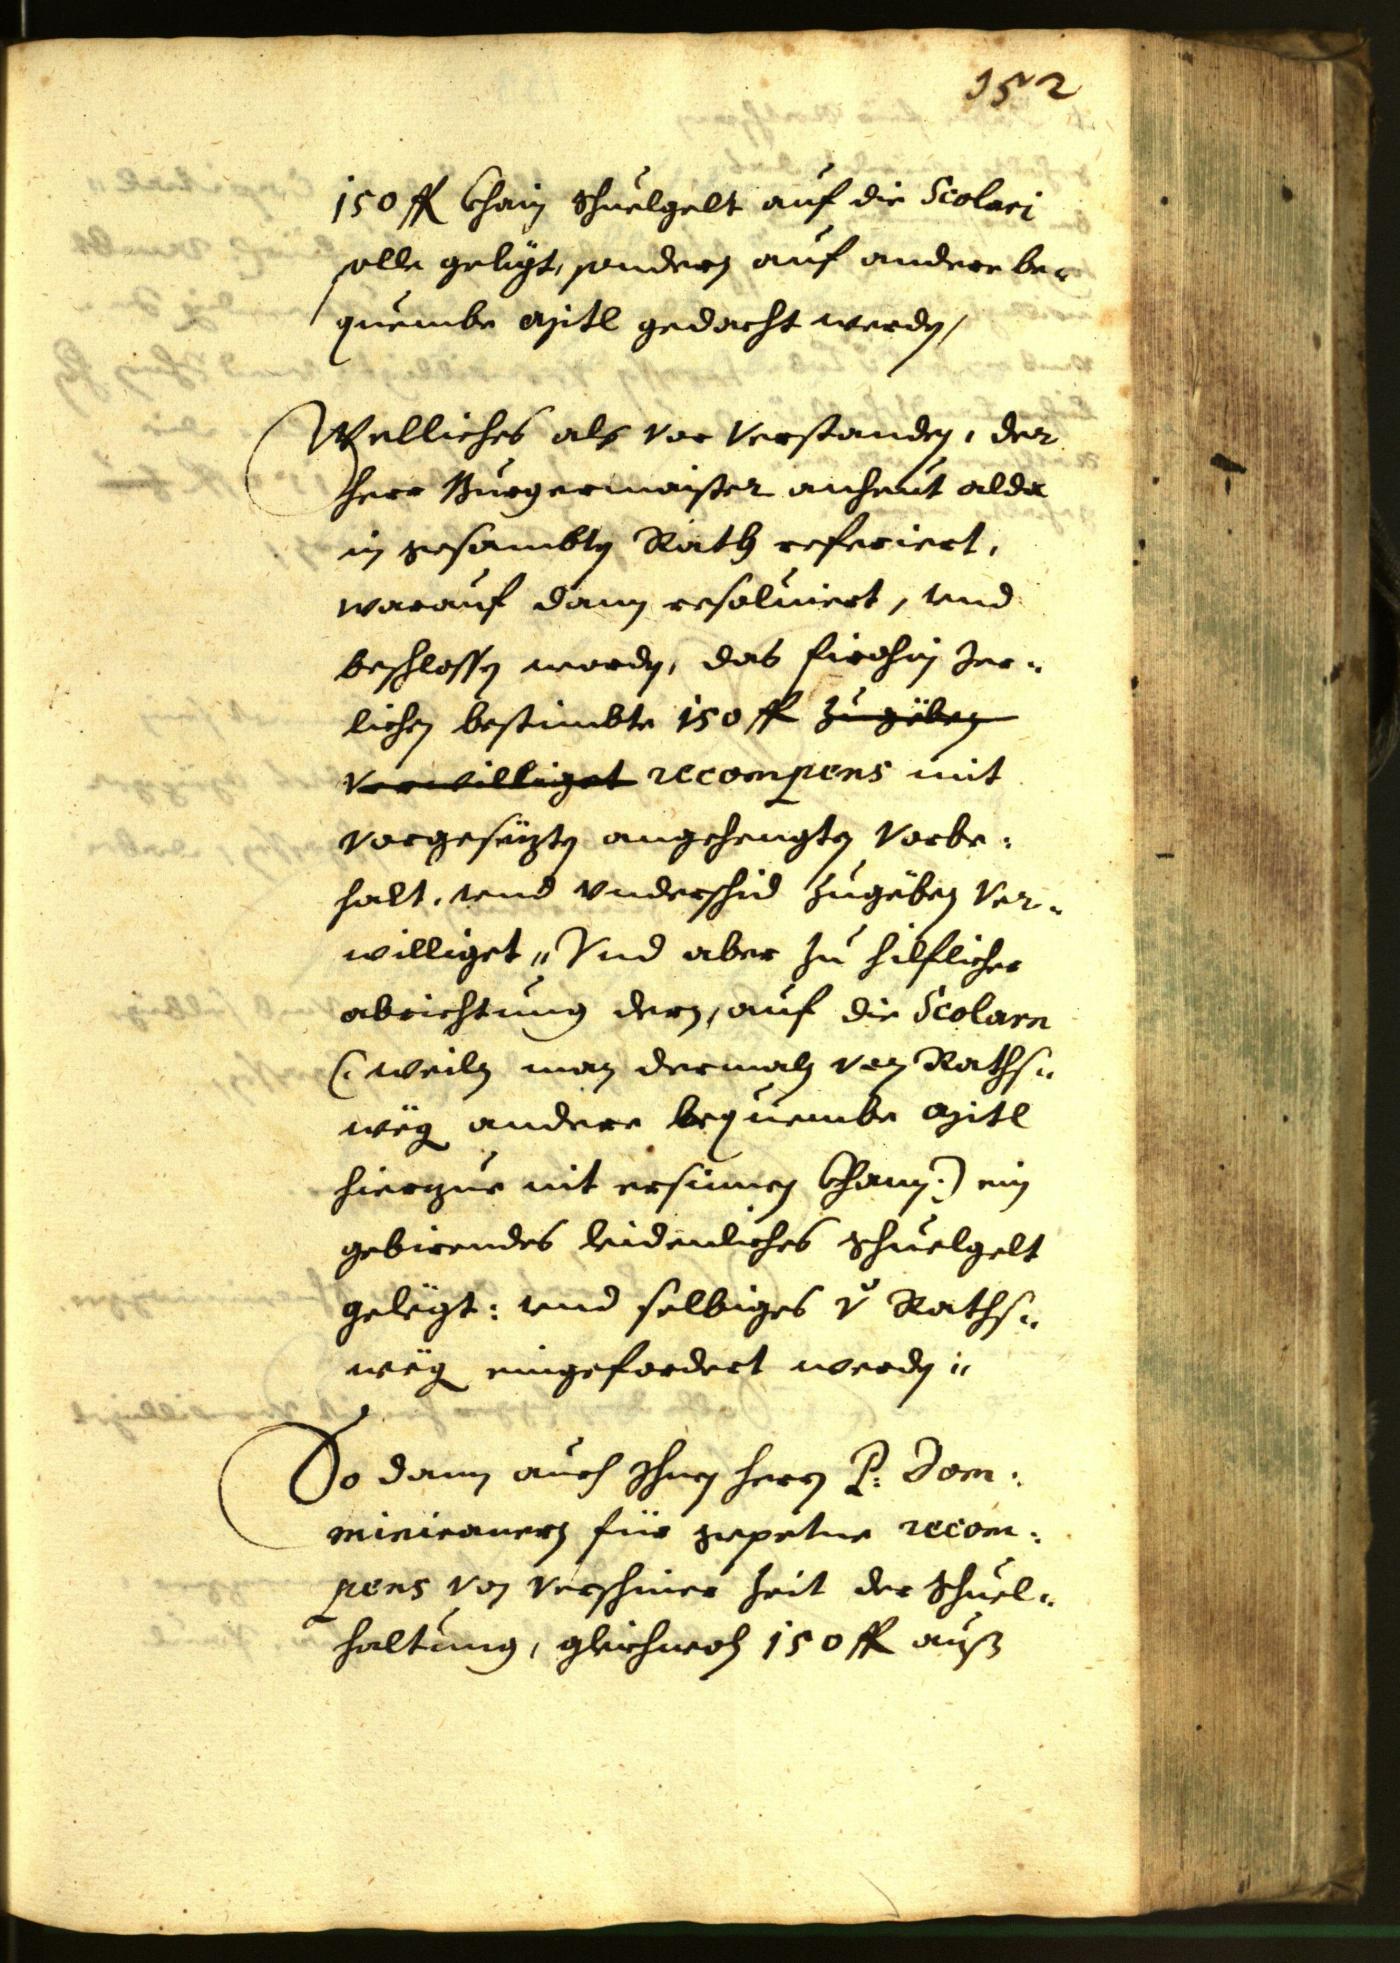 152
150 fl khain schuelgelt auf die Scolari
solle gelegt, sondern auf andere be„
quembe mitl gedacht werden,
Welliches als vor verstanden, der
herr Burgermaister anheut alda
in gesambten Rath referiert,
warauf dann resoluiert, vnd
beschlossen worden, das firohin Jer„
lichen bestimbte 150 fl zugeben
verwilliget recompens mit
vorgesezten angehengten Vorbe:
halt, vnd vnderschid zugeben ver„
williget„ Vnd aber zu hilflicher
abrichtung dern, auf die Scolarn
(: weiln man dermaln von Raths„
weg andere bequembe mitl
hierzue nit ersinnen khann:) ein
gebirendes leidenliches schuelgelt
gelegt: vnd selbiges v Raths„
weg eingefordert werden„
So dann auch Ihnen herrn P: Dom:
minicanern für gepetne recom:
pens von verschiner zeit der schuel„
haltung, gleichwoln 150 fl auß